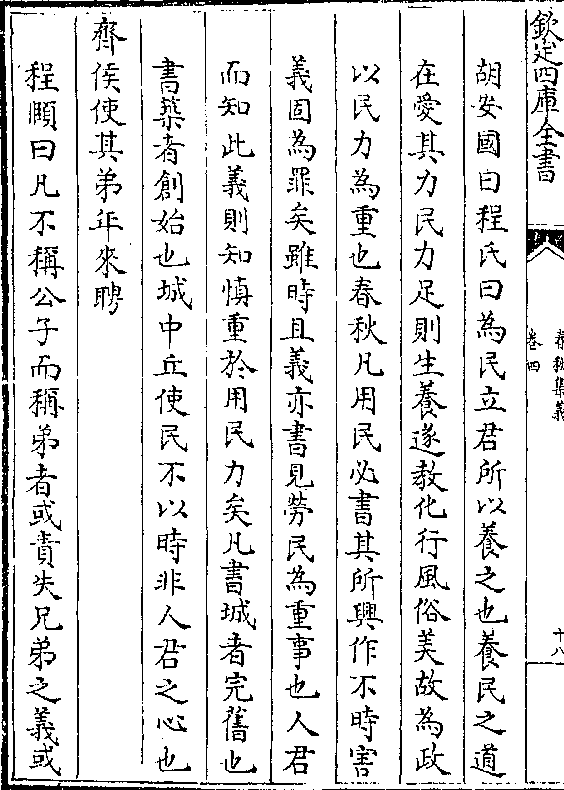 欽定四庫全書
春秋集義
卷四
十八
胡安國曰程氏曰為民立君所以養之也養民之道
在愛其力民力足則生養遂教化行風俗美故為政
以民力為重也春秋凡用民必書其所興作不時害
義固為罪矣雖時且義亦書見勞民為重事也人君
而知此義則知慎重於用民力矣凡書城者完舊也
書築者創始也城中丘使民不以時非人君之心也
齊侯使其弟年來聘
程頤曰凡不稱公子而稱弟者或責失兄弟之義或